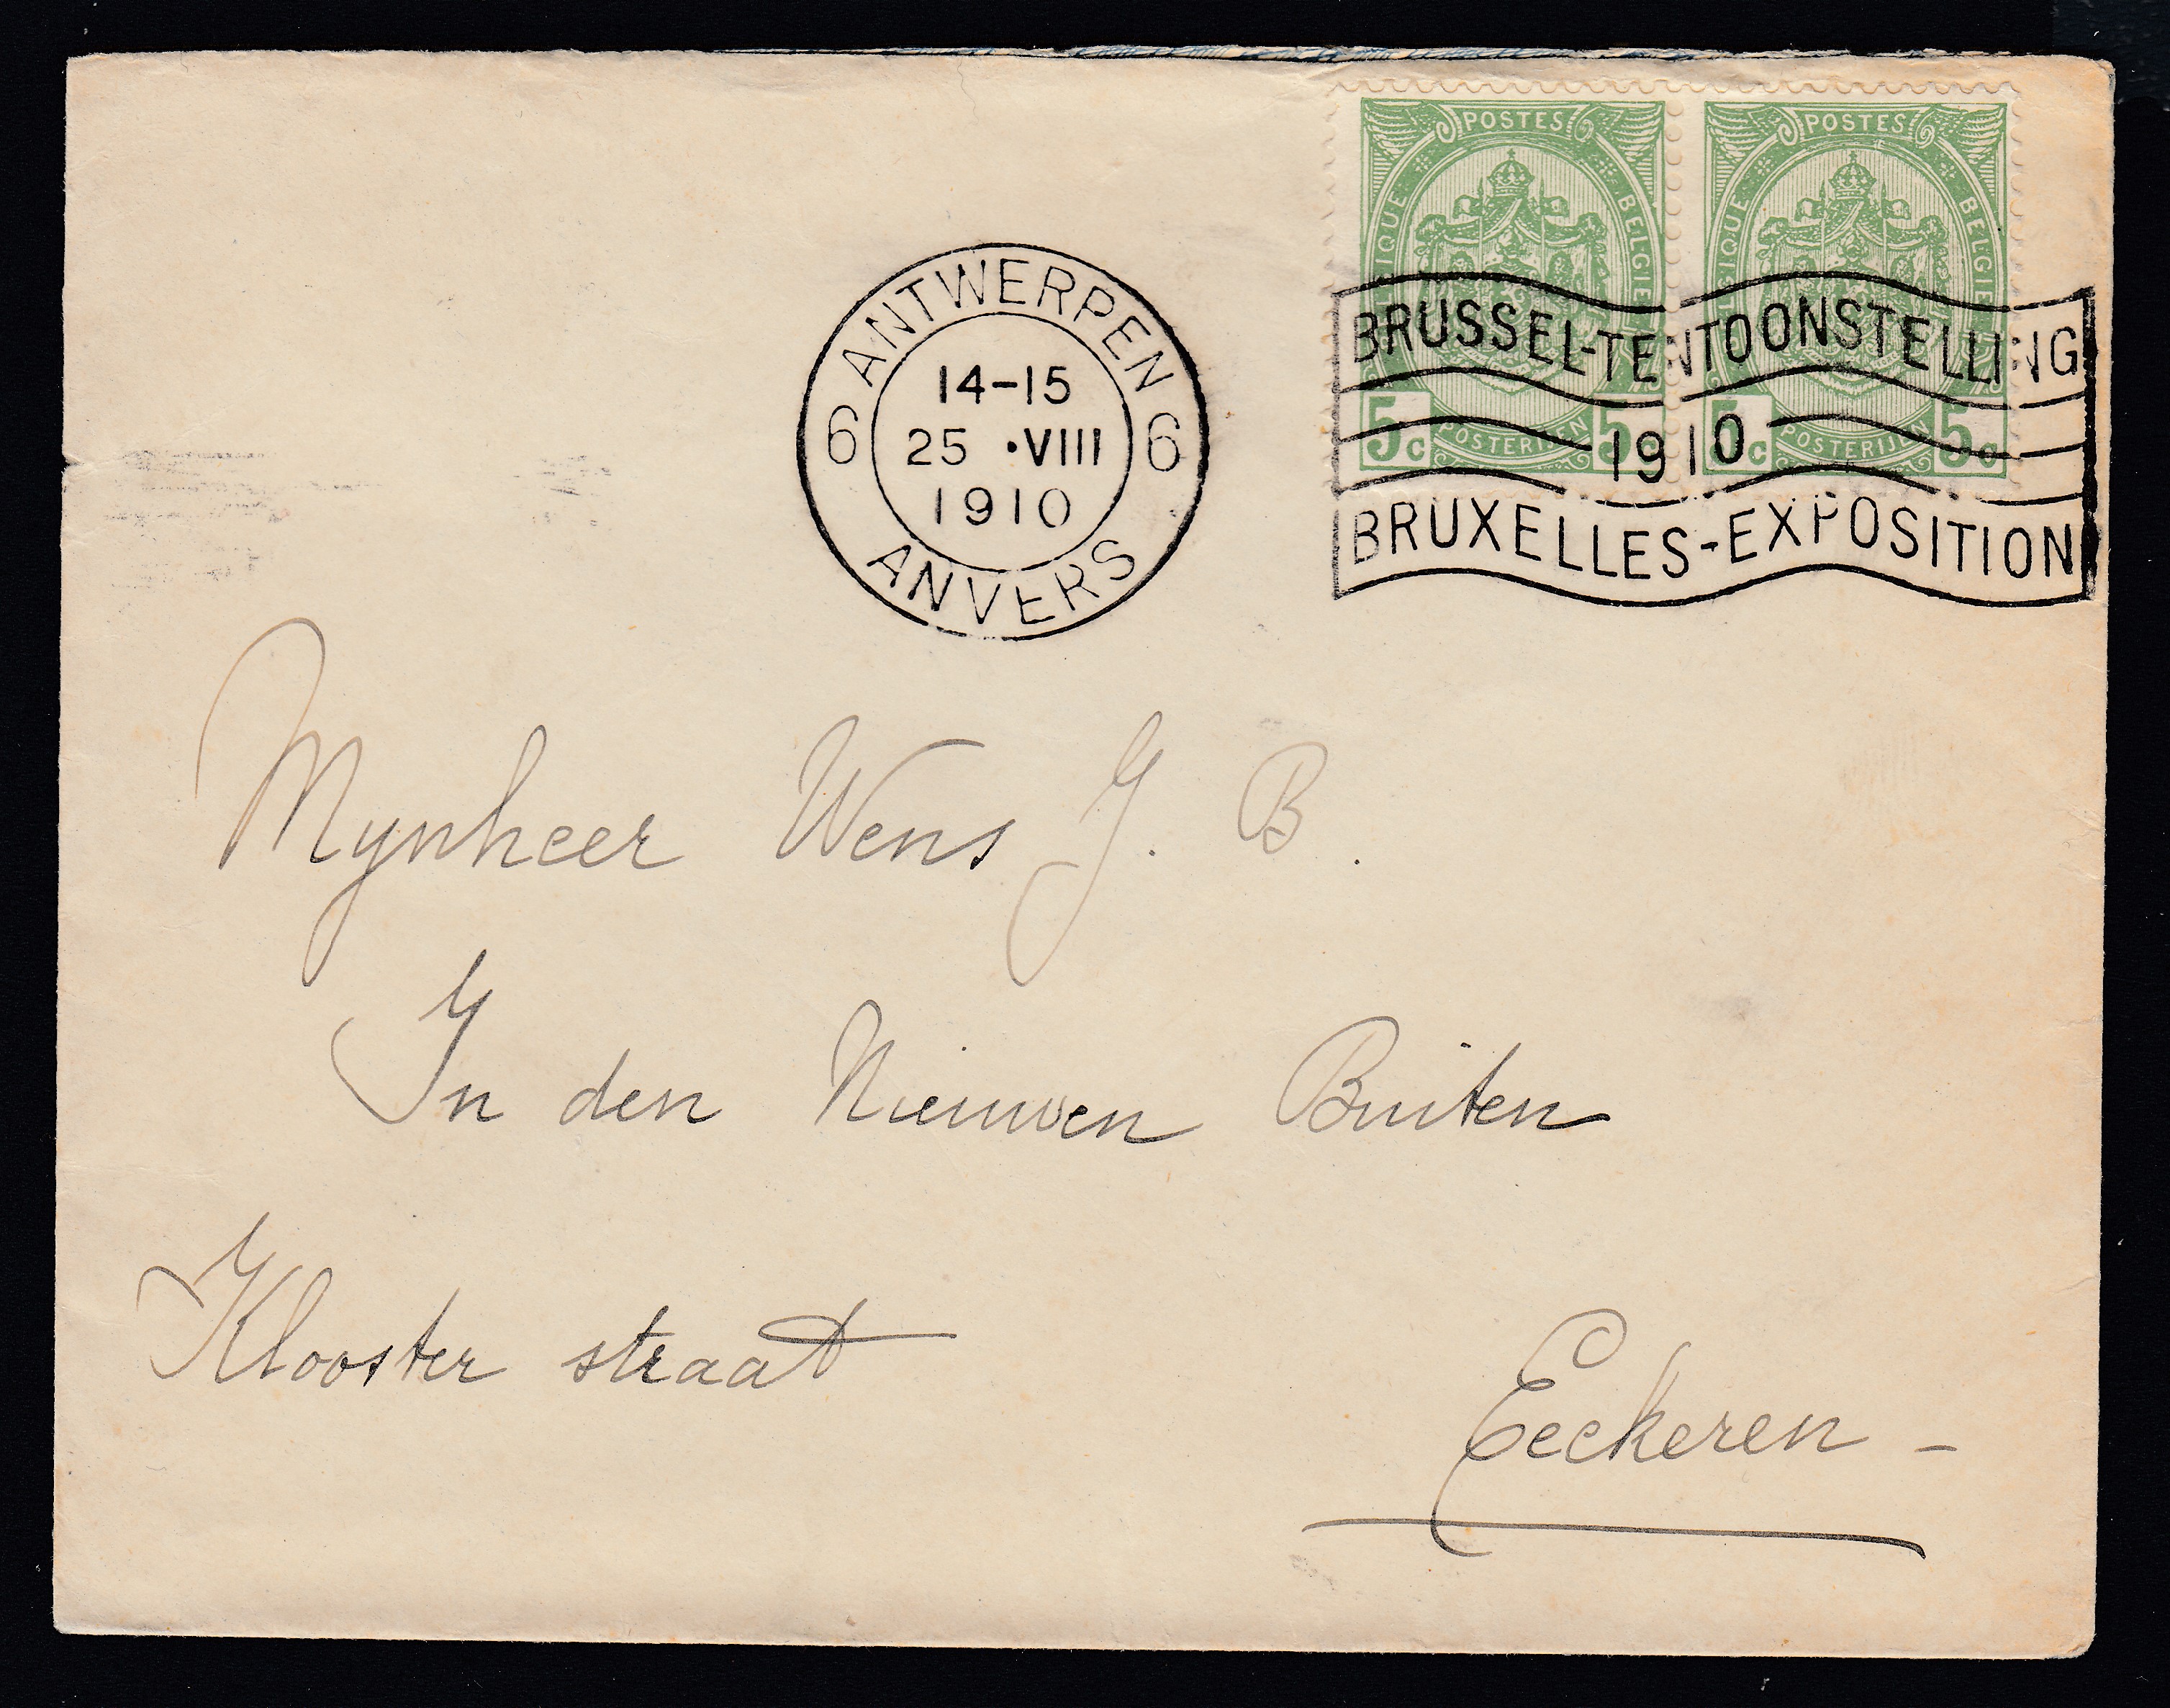 POSTES POSTES
BELGIE BELGIE
BRUSSEL-TENTOONSTELLING
5c 5 5c 5c
POSTERIJEN POSTERIJEN
1910
BRUXELLES-EXPOSITION
ANTWERPEN
14-15
6 25 •VIII 6
1910
ANVERS
Mynheer Wens J. B.
In den Nieuwen Buiten
Klooster straat
Eeckeren -